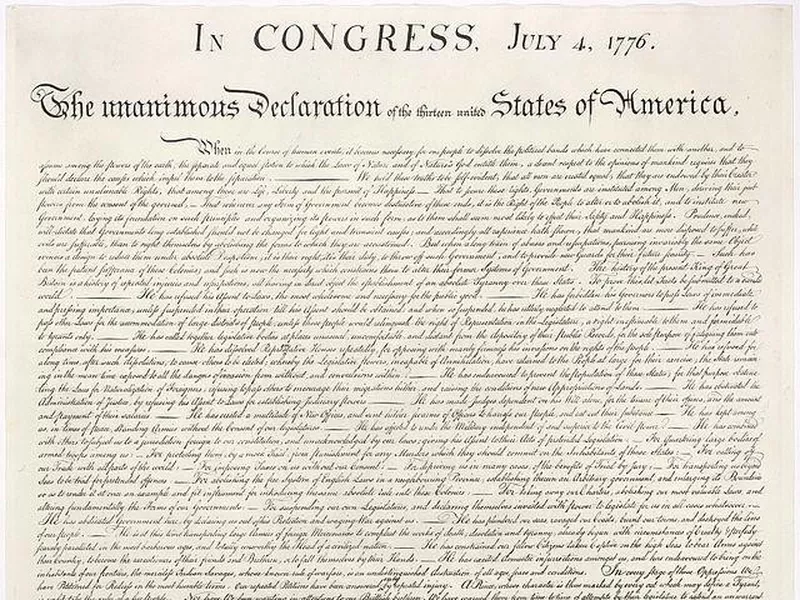 IN CONGRESS, JULY 4, 1776.
The unanimous Declaration of the thirteen united States of America,
When in the Course of human events, it becomes necessary for one people to dissolve the political bands which have connected them with another, and to
assume among the powers of the earth, the separate and equal station to which the Laws of Nature and of Nature's God entitle them, a decent respect to the opinions of mankind requires that they
should declare the causes which impel them to the separation. ——— We hold these truths to be self-evident, that all men are created equal, that they are endowed by their Creator
with certain unalienable Rights, that among these are Life, Liberty and the pursuit of Happiness.— That to secure these rights, Governments are instituted among Men, deriving their just
powers from the consent of the governed,— That whenever any Form of Government becomes destructive of these ends, it is the Right of the People to alter or to abolish it, and to institute new
Government, laying its foundation on such principles and organizing its powers in such form, as to them shall seem most likely to effect their Safety and Happiness. Prudence, indeed,
will dictate that Governments long established should not be changed for light and transient causes; and accordingly all experience hath shewn, that mankind are more disposed to suffer, while
evils are sufferable, than to right themselves by abolishing the forms to which they are accustomed. But when a long train of abuses and usurpations, pursuing invariably the same Object
evinces a design to reduce them under absolute Despotism, it is their right, it is their duty, to throw off such Government, and to provide new Guards for their future security.— Such has
been the patient sufferance of these Colonies; and such is now the necessity which constrains them to alter their former Systems of Government. The history of the present King of Great
Britain is a history of repeated injuries and usurpations, all having in direct object the establishment of an absolute Tyranny over these States. To prove this, let Facts be submitted to a candid
world. ——— He has refused his Assent to Laws, the most wholesome and necessary for the public good. ——— He has forbidden his Governors to pass Laws of immediate
and pressing importance, unless suspended in their operation till his Assent should be obtained; and when so suspended, he has utterly neglected to attend to them. ——— He has refused to
pass other Laws for the accommodation of large districts of people, unless those people would relinquish the right of Representation in the Legislature, a right inestimable to them and formidable
to tyrants only. ——— He has called together legislative bodies at places unusual, uncomfortable, and distant from the depository of their Public Records, for the sole purpose of fatiguing them into
compliance with his measures. ——— He has dissolved Representative Houses repeatedly, for opposing with manly firmness his invasions on the rights of the people. ——— He has refused for
a long time, after such dissolutions, to cause others to be elected; whereby the Legislative powers, incapable of Annihilation, have returned to the People at large for their exercise; the State remain-
ing in the mean time exposed to all the dangers of invasion from without, and convulsions within. ——— He has endeavoured to prevent the population of these States; for that purpose obstruc-
ting the Laws for Naturalization of Foreigners; refusing to pass others to encourage their migrations hither, and raising the conditions of new Appropriations of Lands. ——— He has obstructed the
Administration of Justice, by refusing his Assent to Laws for establishing Judiciary powers. ——— He has made Judges dependent on his Will alone, for the tenure of their offices, and the amount
and payment of their salaries. ——— He has erected a multitude of New Offices, and sent hither swarms of Officers to harrass our people, and eat out their substance. ——— He has kept among
us, in times of peace, Standing Armies without the Consent of our legislatures. ——— He has affected to render the Military independent of and superior to the Civil power. ——— He has combined
with others to subject us to a jurisdiction foreign to our constitution, and unacknowledged by our laws; giving his Assent to their Acts of pretended Legislation: — For Quartering large bodies of
armed troops among us: — For protecting them, by a mock Trial, from punishment for any Murders which they should commit on the Inhabitants of these States: — For cutting off
our Trade with all parts of the world: — For imposing Taxes on us without our Consent: — For depriving us in many cases, of the benefits of Trial by Jury: — For transporting us beyond
Seas to be tried for pretended offences — For abolishing the free System of English Laws in a neighbouring Province, establishing therein an Arbitrary government, and enlarging its Boundaries
so as to render it at once an example and fit instrument for introducing the same absolute rule into these Colonies: — For taking away our Charters, abolishing our most valuable Laws, and
altering fundamentally the Forms of our Governments: — For suspending our own Legislatures, and declaring themselves invested with power to legislate for us in all cases whatsoever.—
He has abdicated Government here, by declaring us out of his Protection and waging War against us. — He has plundered our seas, ravaged our Coasts, burnt our towns, and destroyed the lives
of our people. — He is at this time transporting large Armies of foreign Mercenaries to compleat the works of death, desolation and tyranny, already begun with circumstances of Cruelty & perfidy
scarcely paralleled in the most barbarous ages, and totally unworthy the Head of a civilized nation. — He has constrained our fellow Citizens taken Captive on the high Seas to bear Arms against
their Country, to become the executioners of their friends and Brethren, or to fall themselves by their Hands. — He has excited domestic insurrections amongst us, and has endeavoured to bring on the
inhabitants of our frontiers, the merciless Indian Savages, whose known rule of warfare, is an undistinguished destruction of all ages, sexes and conditions. In every stage of these Oppressions We
have Petitioned for Redress in the most humble terms: Our repeated Petitions have been answered only by repeated injury. A Prince, whose character is thus marked by every act which may define a Tyrant,